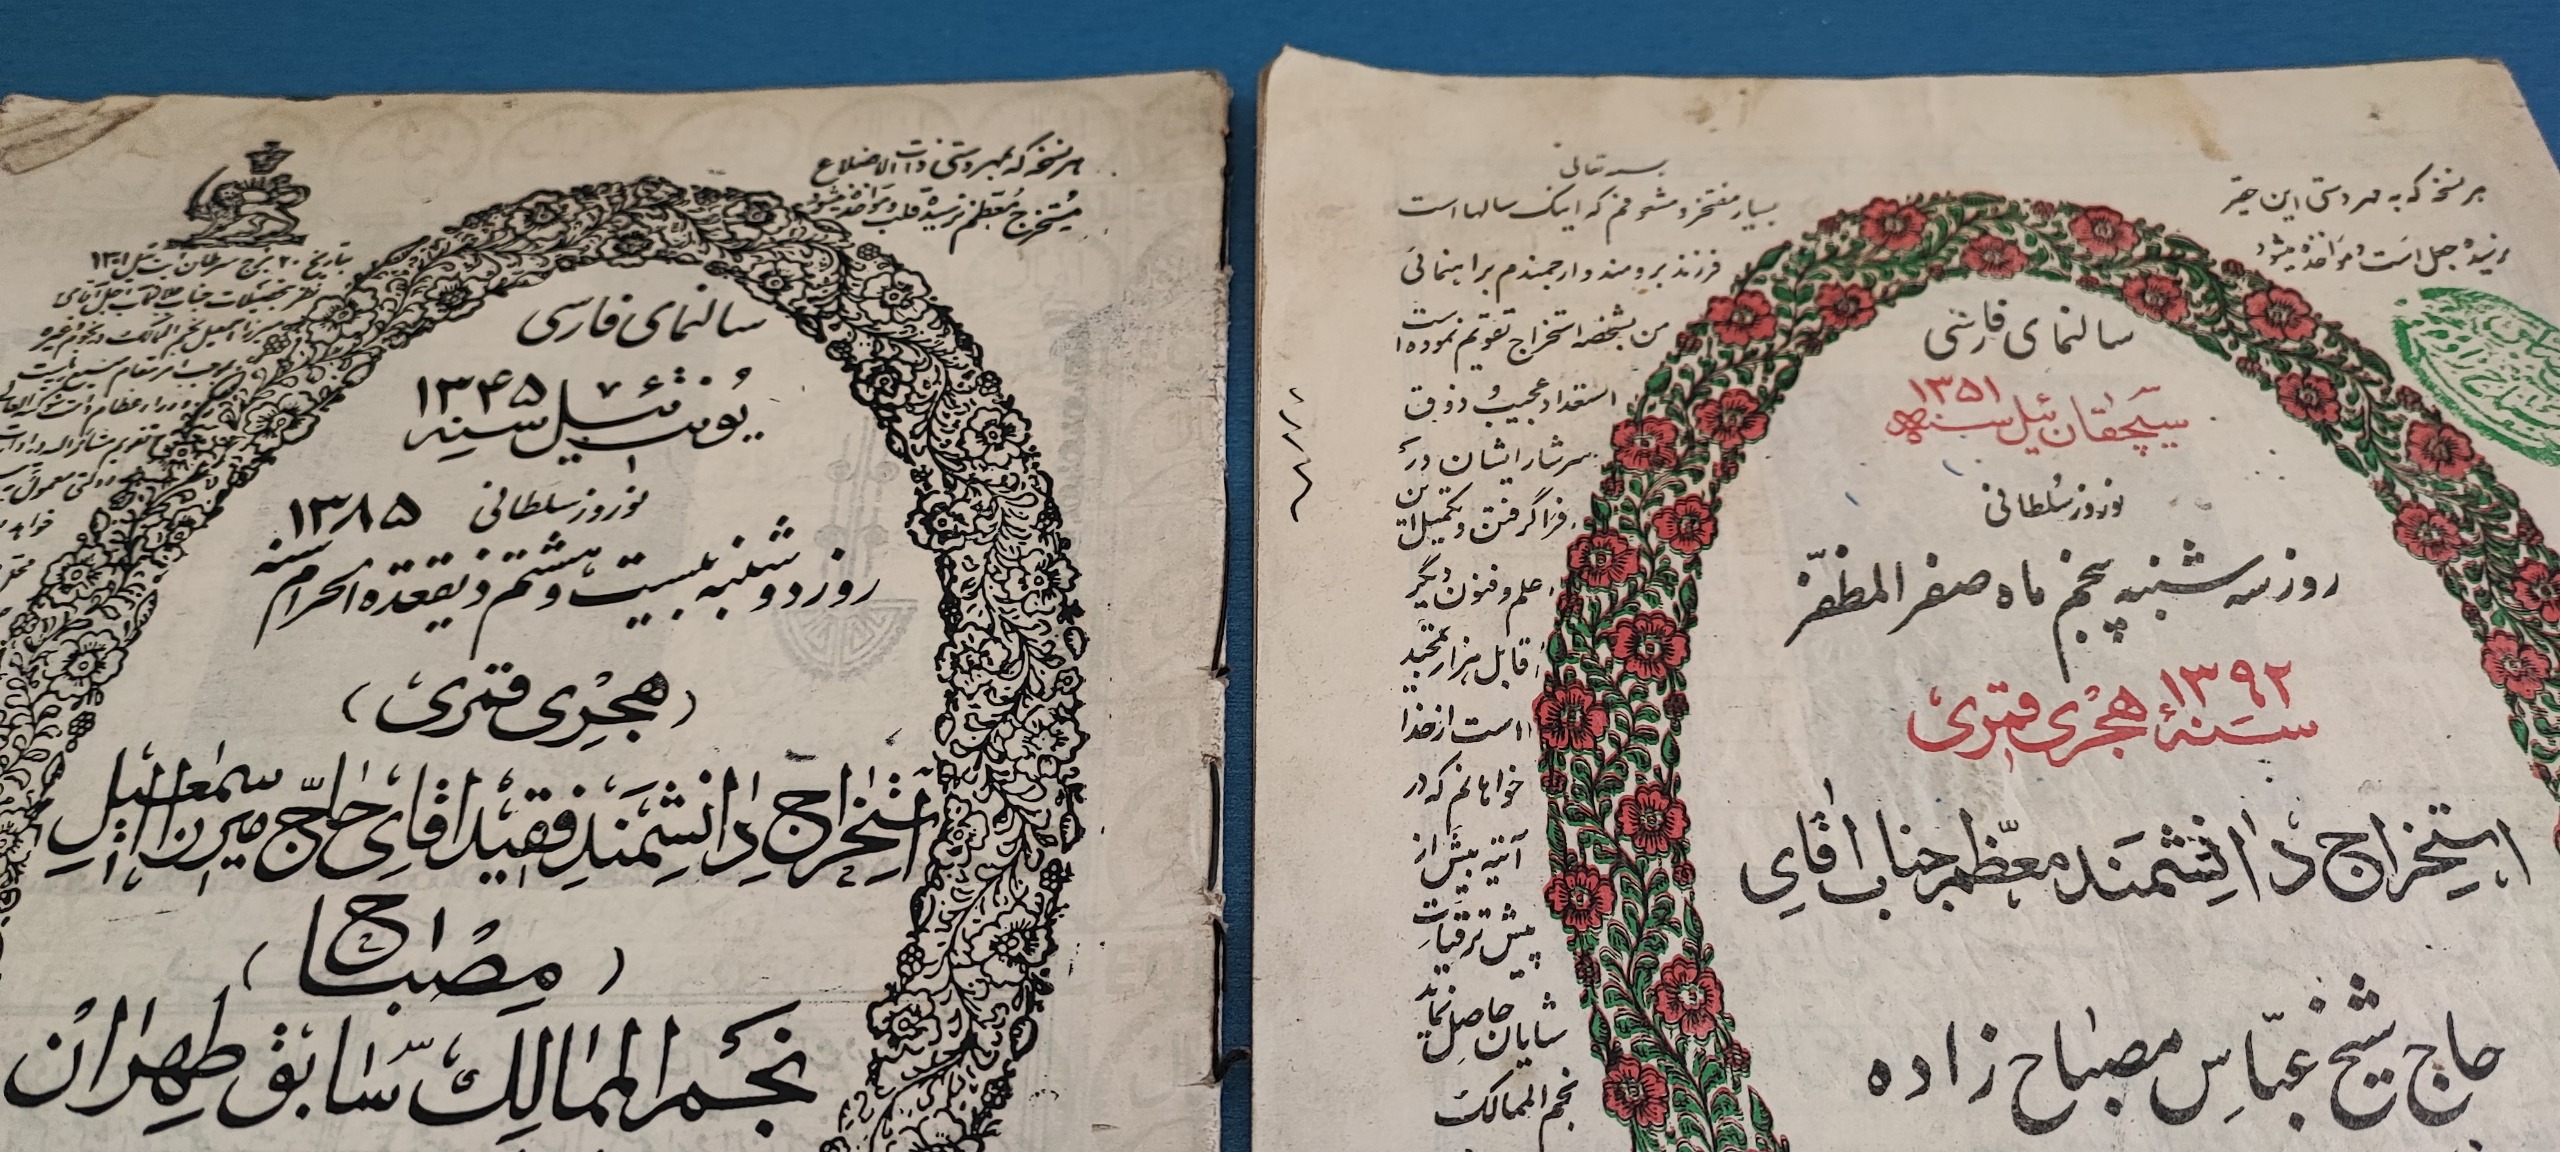 بسمه تعالی
هر نسخه که به مهر دستی این حقیر
نرسیده جعل است و مؤاخذه میشود
سالنمای فارسی
سیچقان ئیل سنه ۱۳۵۱
نوروز سلطانی
روز سه شنبه پنجم ماه صفر المظفّر
سنهٔ ۱۳۹۲ هجری قمری
استخراج دانشمند معظّم جناب آقای
حاج شیخ عبّاس مصباح زاده
بسیار مفتخر و مشعوفم که اینک سالها است
فرزند برومند و ارجمندم براهنمائی
من بشخصه استخراج تقویم نموده است
استعداد عجیب و ذوق
سرشار ایشان در
فرا گرفتن و تکمیل
علم و فنون دیگر
قابل هزار تمجید
است از خدا
خواهانم که در
آتیه بیش از
پیش ترقیات
شایان حاصل نماید
نجم الممالک
هر نسخه که بمهر دستی ذات الاضلاع
مستخرج معظم نرسیده قلب و مؤاخذه میشود
سالنمای فارسی
یونت ئیل سنه ۱۳۴۵
نوروز سلطانی
روز دوشنبه بیست و هشتم ذیقعده الحرام سنه ۱۳۸۵
(هجری قمری)
استخراج دانشمند فقید آقای حاجّ میرزا اسمعیل
(مصباح)
نجم الممالک سابق طهران
بتاریخ ۲۰ برج سرطان